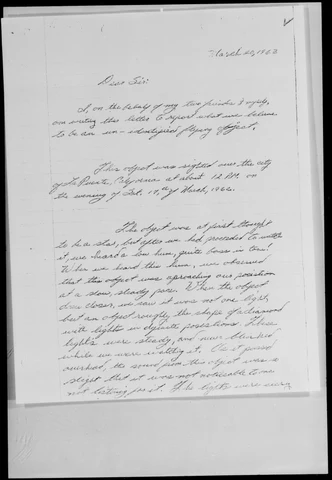 March 20, 1962
Dear Sir:
I, on the behalf of my two friends & myself,
am writing this letter to report what we believe
to be an un-identified flying object.
This object was sighted over the city
of La Puente, California at about 12 PM. on
the evening of Sat. 17th of March, 1962.
The object was at first thought
to be a star, but after we had proceeded to watch
it we heard a low hum, quite bass in tone!
When we heard this hum, we observed
that this object was aproaching our position
at a slow, steady pace. When the object
drew closer, we saw it was not one light,
but an object roughly the shape of a diamond
with lights in opposite possitions. These
lights were steady, and never blinked
while we were watching it. As it passed
overhead, the sound from this object was so
slight that it was not noticeable to one
not listening for it. The lights were